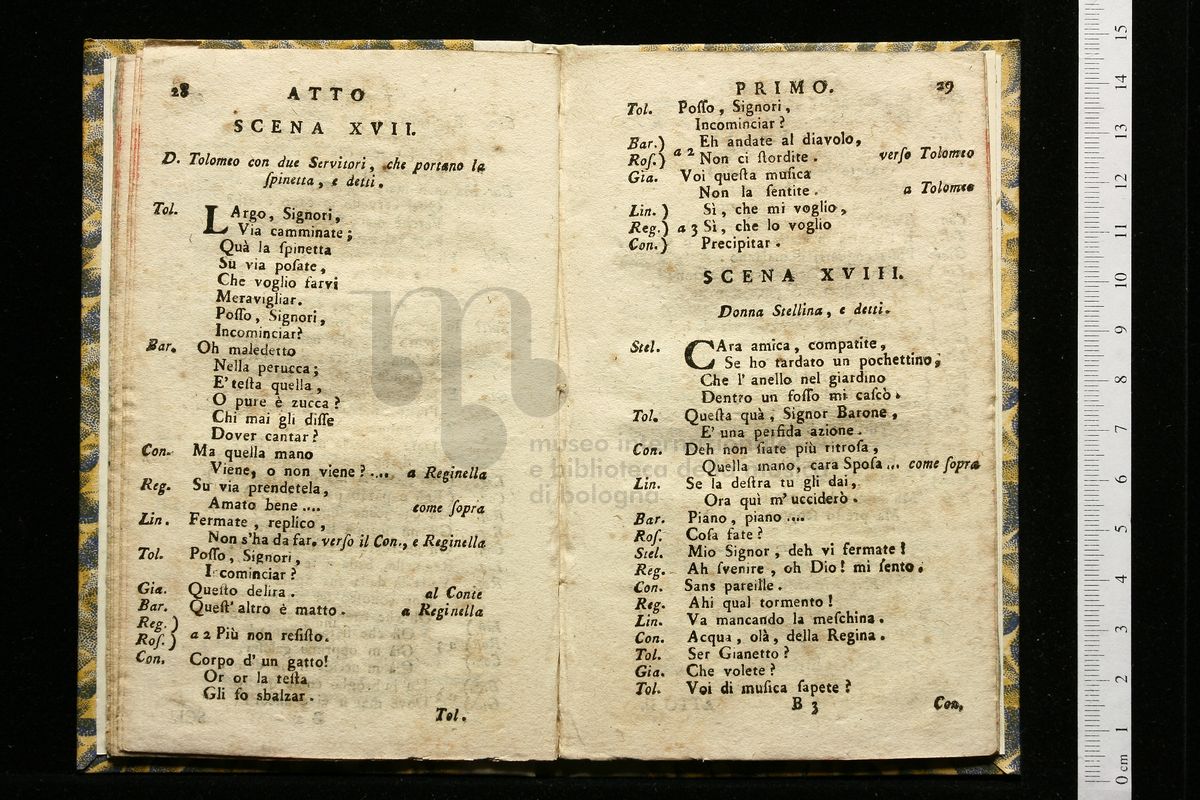 28 ATTO
SCENA XVII.
D. Tolomeo con due Servitori, che portano la
ſpinetta, e detti.
Tol. LArgo, Signori,
Via camminate;
Quà la ſpinetta
Su via poſate,
Che voglio farvi
Meravigliar.
Poſſo, Signori,
Incominciar?
Bar. Oh maledetto
Nella perucca;
E' teſta quella,
O pure è zucca?
Chi mai gli diſſe
Dover cantar?
Con. Ma quella mano
Viene, o non viene?.... a Reginella
Reg. Su via prendetela,
Amato bene.... come ſopra
Lin. Fermate, replico,
Non s'ha da far. verſo il Con., e Reginella
Tol. Poſſo, Signori,
Incominciar?
Gia. Queſto delira. al Conte
Bar. Queſt' altro è matto. a Reginella
Reg.)
Roſ.) a 2 Più non reſiſto.
Con. Corpo d'un gatto!
Or or la teſta
Gli fo sbalzar.
Tol.
PRIMO. 29
Tol. Poſſo, Signori,
Incominciar?
Bar.) Eh andate al diavolo,
Roſ.) a 2 Non ci ſtordite. verſo Tolomeo
Gia. Voi queſta muſica
Non la ſentite. a Tolomeo
Lin.) Sì, che mi voglio,
Reg.) a 3 Sì, che lo voglio
Con.) Precipitar.
SCENA XVIII.
Donna Stellina, e detti.
Stel. CAra amica, compatite,
Se ho tardato un pochettino;
Che l' anello nel giardino
Dentro un foſſo mi caſcò.
Tol. Queſta quà, Signor Barone,
E' una perfida azione.
Con. Deh non ſiate più ritroſa,
Quella mano, cara Spoſa... come ſopra
Lin. Se la deſtra tu gli dai,
Ora quì m' ucciderò.
Bar. Piano, piano....
Roſ. Coſa fate?
Stel. Mio Signor, deh vi fermate!
Reg. Ah ſvenire, oh Dio! mi ſento.
Con. Sans pareille.
Reg. Ahi qual tormento!
Lin. Va mancando la meſchina.
Con. Acqua, olà, della Regina.
Tol. Ser Gianetto?
Gia. Che volete?
Tol. Voi di muſica ſapete?
B 3 Con.
museo internazionale
e biblioteca de
di bologna
0 cm 1 2 3 4 5 6 7 8 9 10 11 12 13 14 15